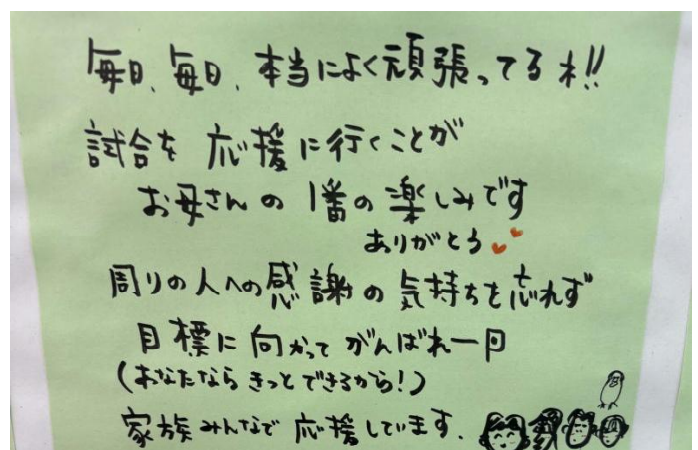 毎日、毎日、本当によく頑張ってるネ!!
試合を応援に行くことが
お母さんの1番の楽しみです
ありがとう
周りの人への感謝の気持ちを忘れず
目標に向かってがんばれー
(あなたならきっとできるから!)
家族みんなで応援しています.